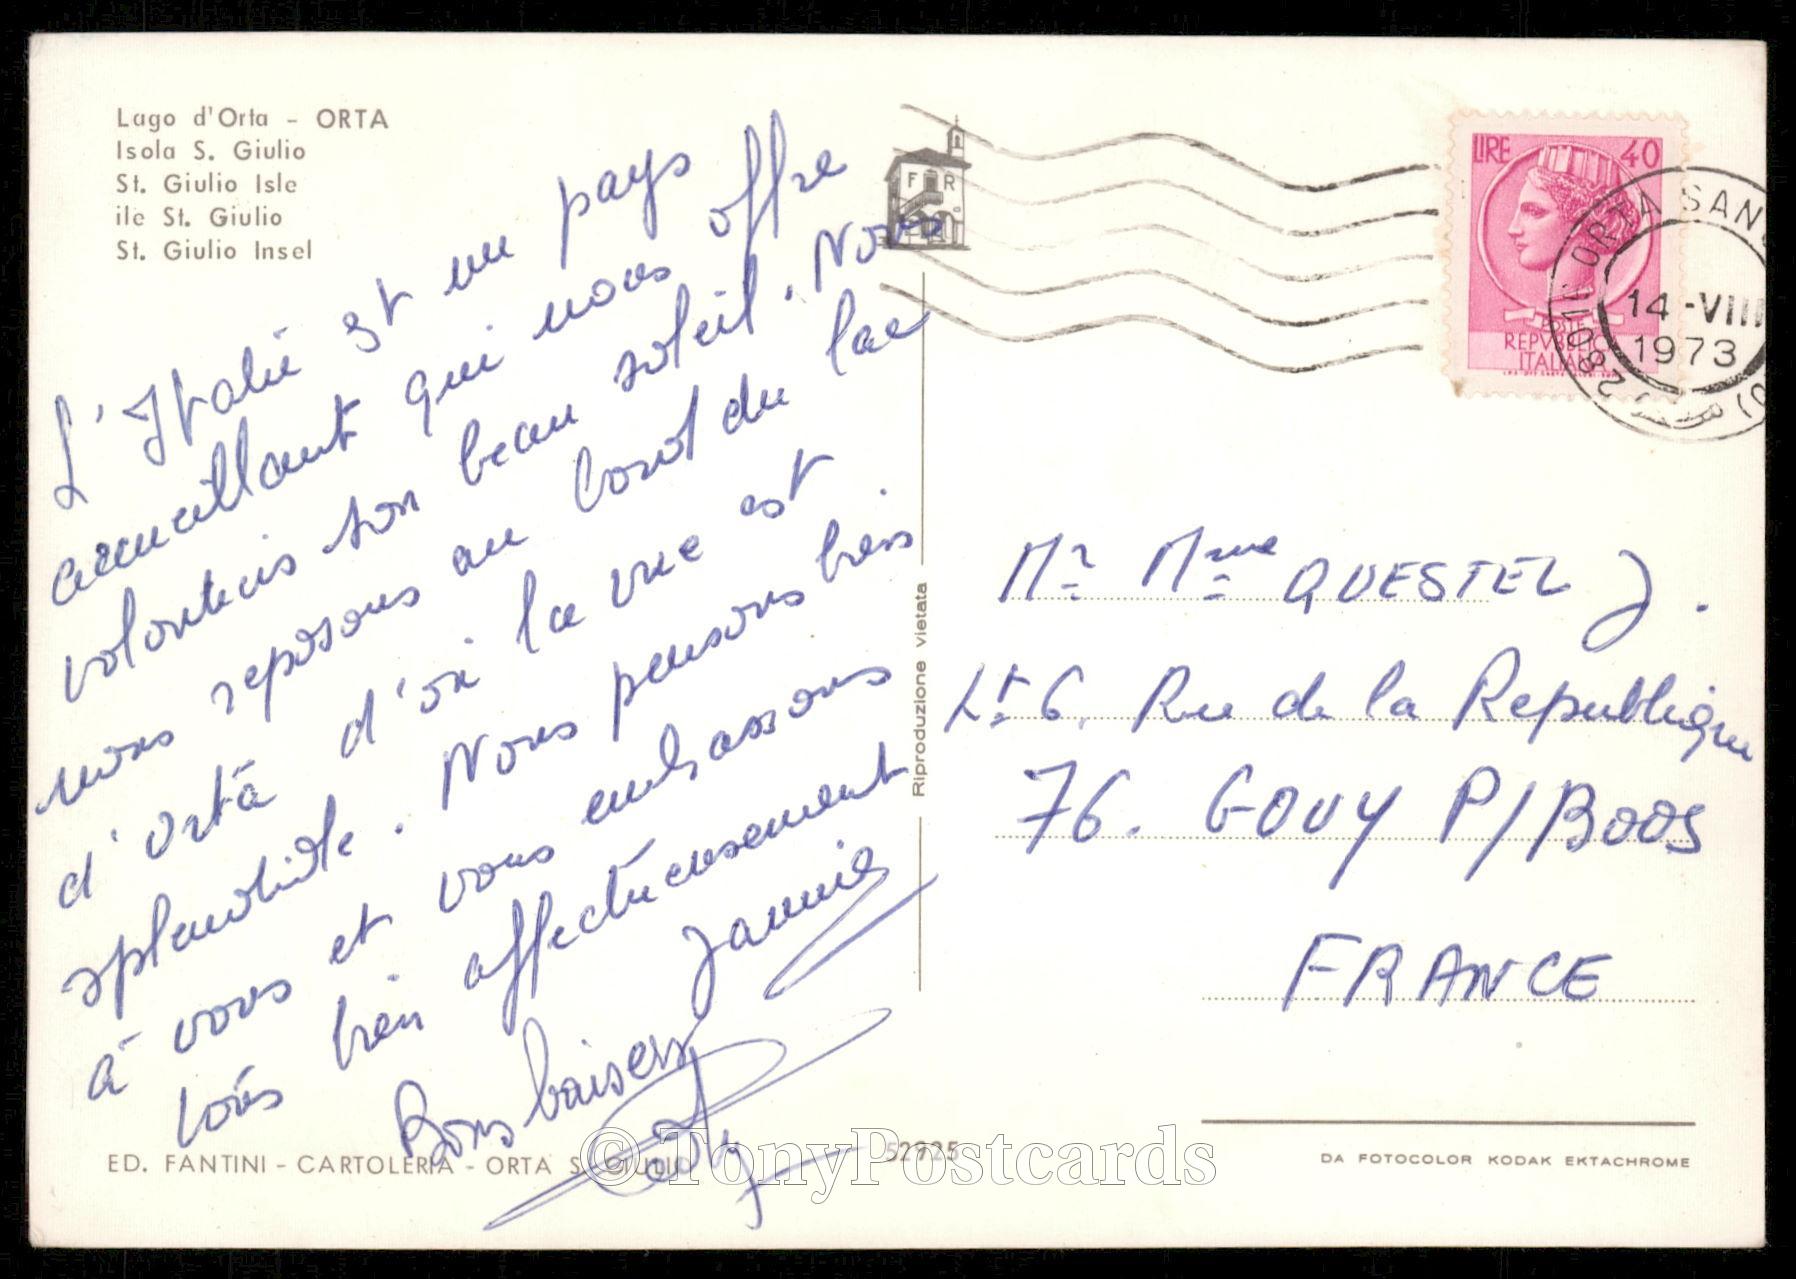 Lago d'Orta - ORTA
Isola S. Giulio
St. Giulio Isle
ile St. Giulio
St. Giulio Insel
L'Italie est un pays
accueillant qui nous offre
volontiers son beau soleil. Nous
nous reposons au bord du lac
d'ortà d'où la vue est
splendide. Nous pensons bien
à vous et vous embrassons
tous bien affectueusement
Bons baisers Jannie
ED. FANTINI - CARTOLERIA - ORTA S. GIULIO
52925
© TonyPostcards
Riproduzione vietata
F R
LIRE 40
POSTE
REPVBBLICA
ITALIANA
28016 ORTA SAN
14-VIII
1973
Mr Mme QUESTEL J.
Lt. 6. Rue de la Republique
76. GOUY P/BOOS
FRANCE
DA FOTOCOLOR KODAK EKTACHROME